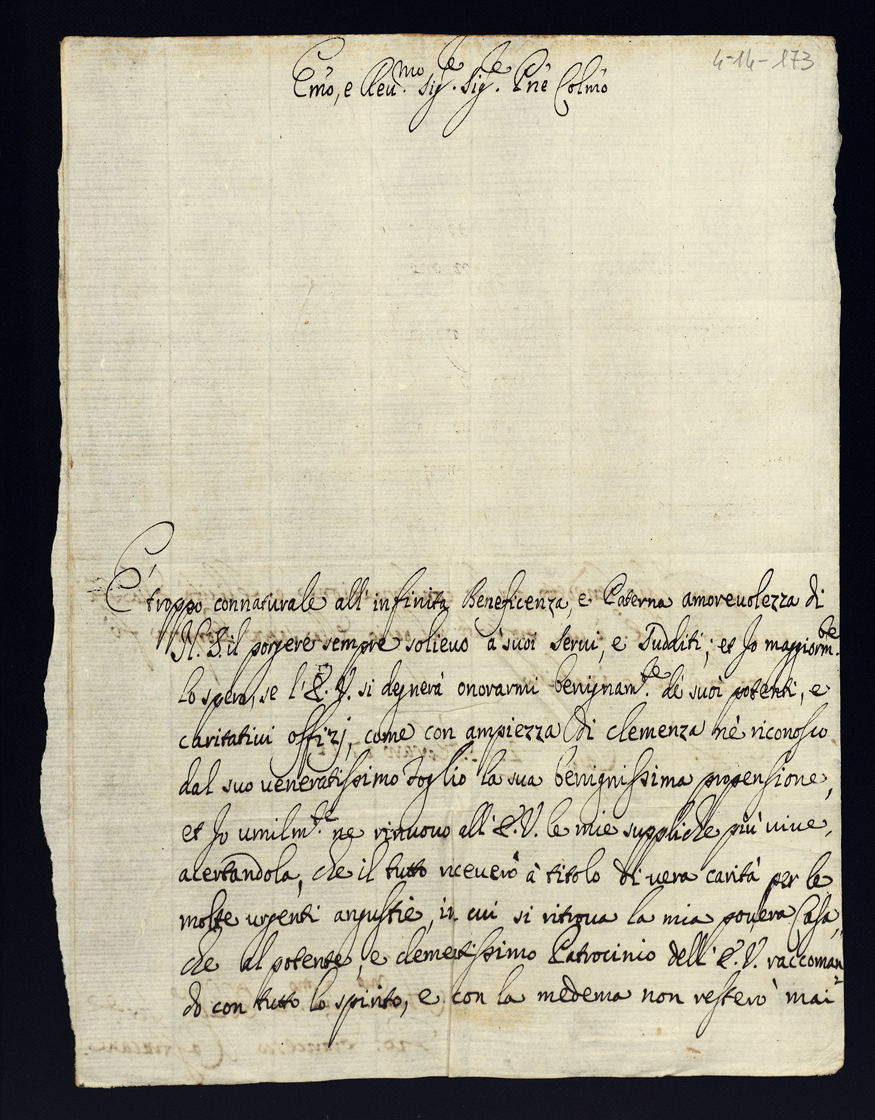 4-14-173
Emo, e Reu.mo Sig.re Sig.re Pne Colmo
E' troppo connaturale all'infinita Beneficenza, e Paterna amoreuolezza di
N. S. il porgere sempre solieuo à suoi serui, e Sudditi; et Io maggiorm.te
lo spero, se l'E. V. si degnerà onorarmi benignam.te de suoi potenti, e
caritatiui offizj, come con ampiezza di clemenza nè riconosco
dal suo veneratissimo foglio la sua benignissima propensione,
et Io umilm.te ne rinuouo all'E. V. le mie suppliche più viue,
acertandola, che il tutto riceuerò à titolo di vera carità per le
molte urgenti angustie, in cui si ritroua la mia pouera Casa,
che al potente, e clementissimo Patrocinio dell'E. V. raccoman
do con tutto lo spirito, e con la medema non resterò mai